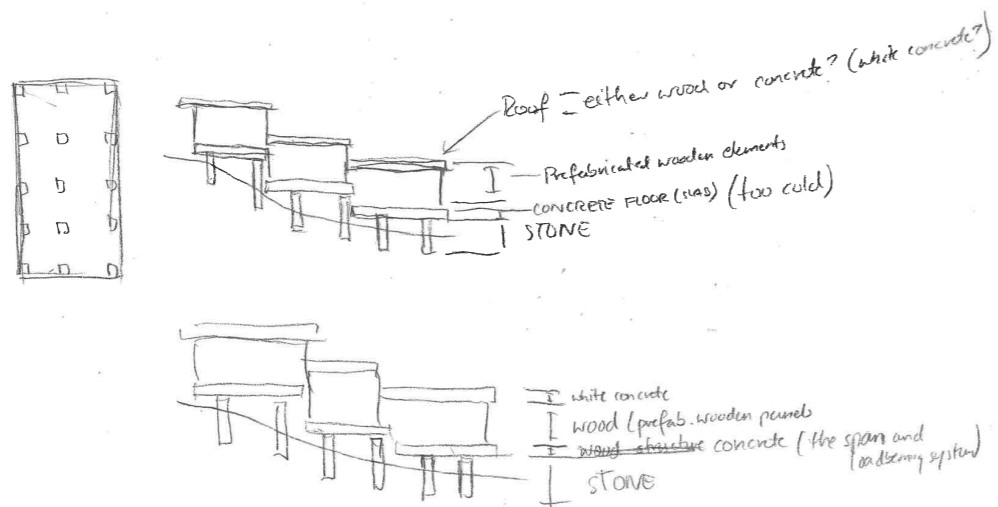 Roof = either wood or concrete? (white concrete?)
Prefabricated wooden elements
CONCRETE FLOOR (SLAB) (too cold)
STONE
white concrete
wood (prefab. wooden panels
wood structure concrete (the span and
loadbearing system)
STONE